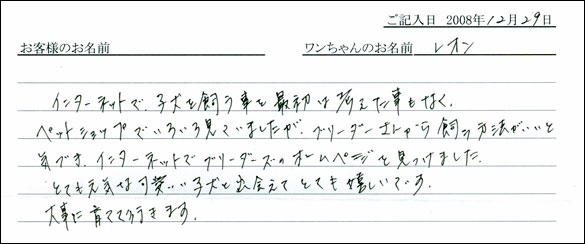 ご記入日 2008年12月29日
お客様のお名前 ワンちゃんのお名前 レオン
インターネットで、子犬を飼う事を最初は考えた事もなく、
ペットショップでいろいろ見ていましたが、ブリーダーさんから飼う方法がいいと
気づき、インターネットでブリーダーズのホームページを見つけました。
とても元気な可愛い子犬と出会えてとても嬉しいです。
大事に育てて行きます。